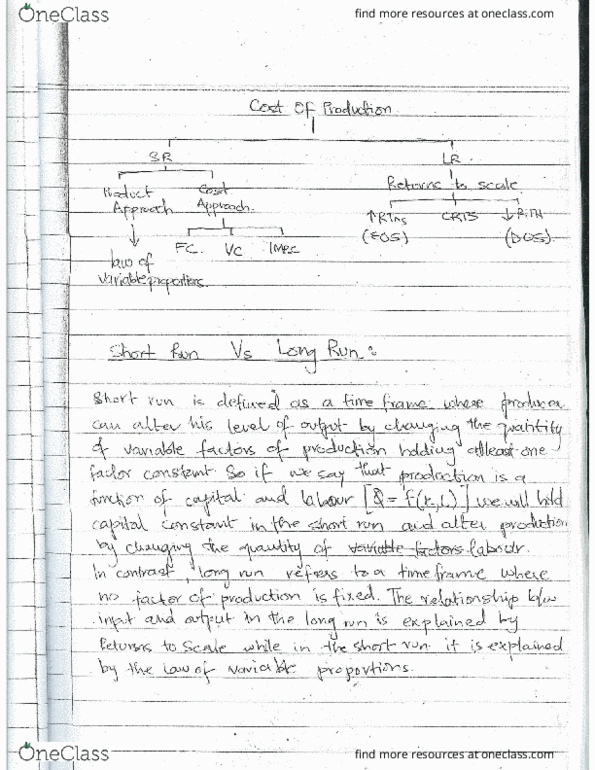 OneClass
find more resources at oneclass.com
Cost Of Production
SR
LR
Product Approach
Cost Approach.
Returns to scale.
↑RTns (EOS)
CRTS
(DOS).
FC.
VC
law of variable proportions.
Short Run Vs Long Run:
Short run is defined as a time frame where producer
can alter his level of output by changing the quantity
of variable factors of production holding atleast one
factor constant. So if we say that production is a
function of capital and labour [Q = f(K,L)] we will hold
capital constant in the short run and alter production
by changing the quantity of variable factors labour.
In contrast, long run refers to a time frame where
no factor of production is fixed. The relationship b/w
input and output in the long run is explained by
Returns to Scale while in the short run it is explained
by the law of variable proportions.
OneClass
find more resources at oneclass.com